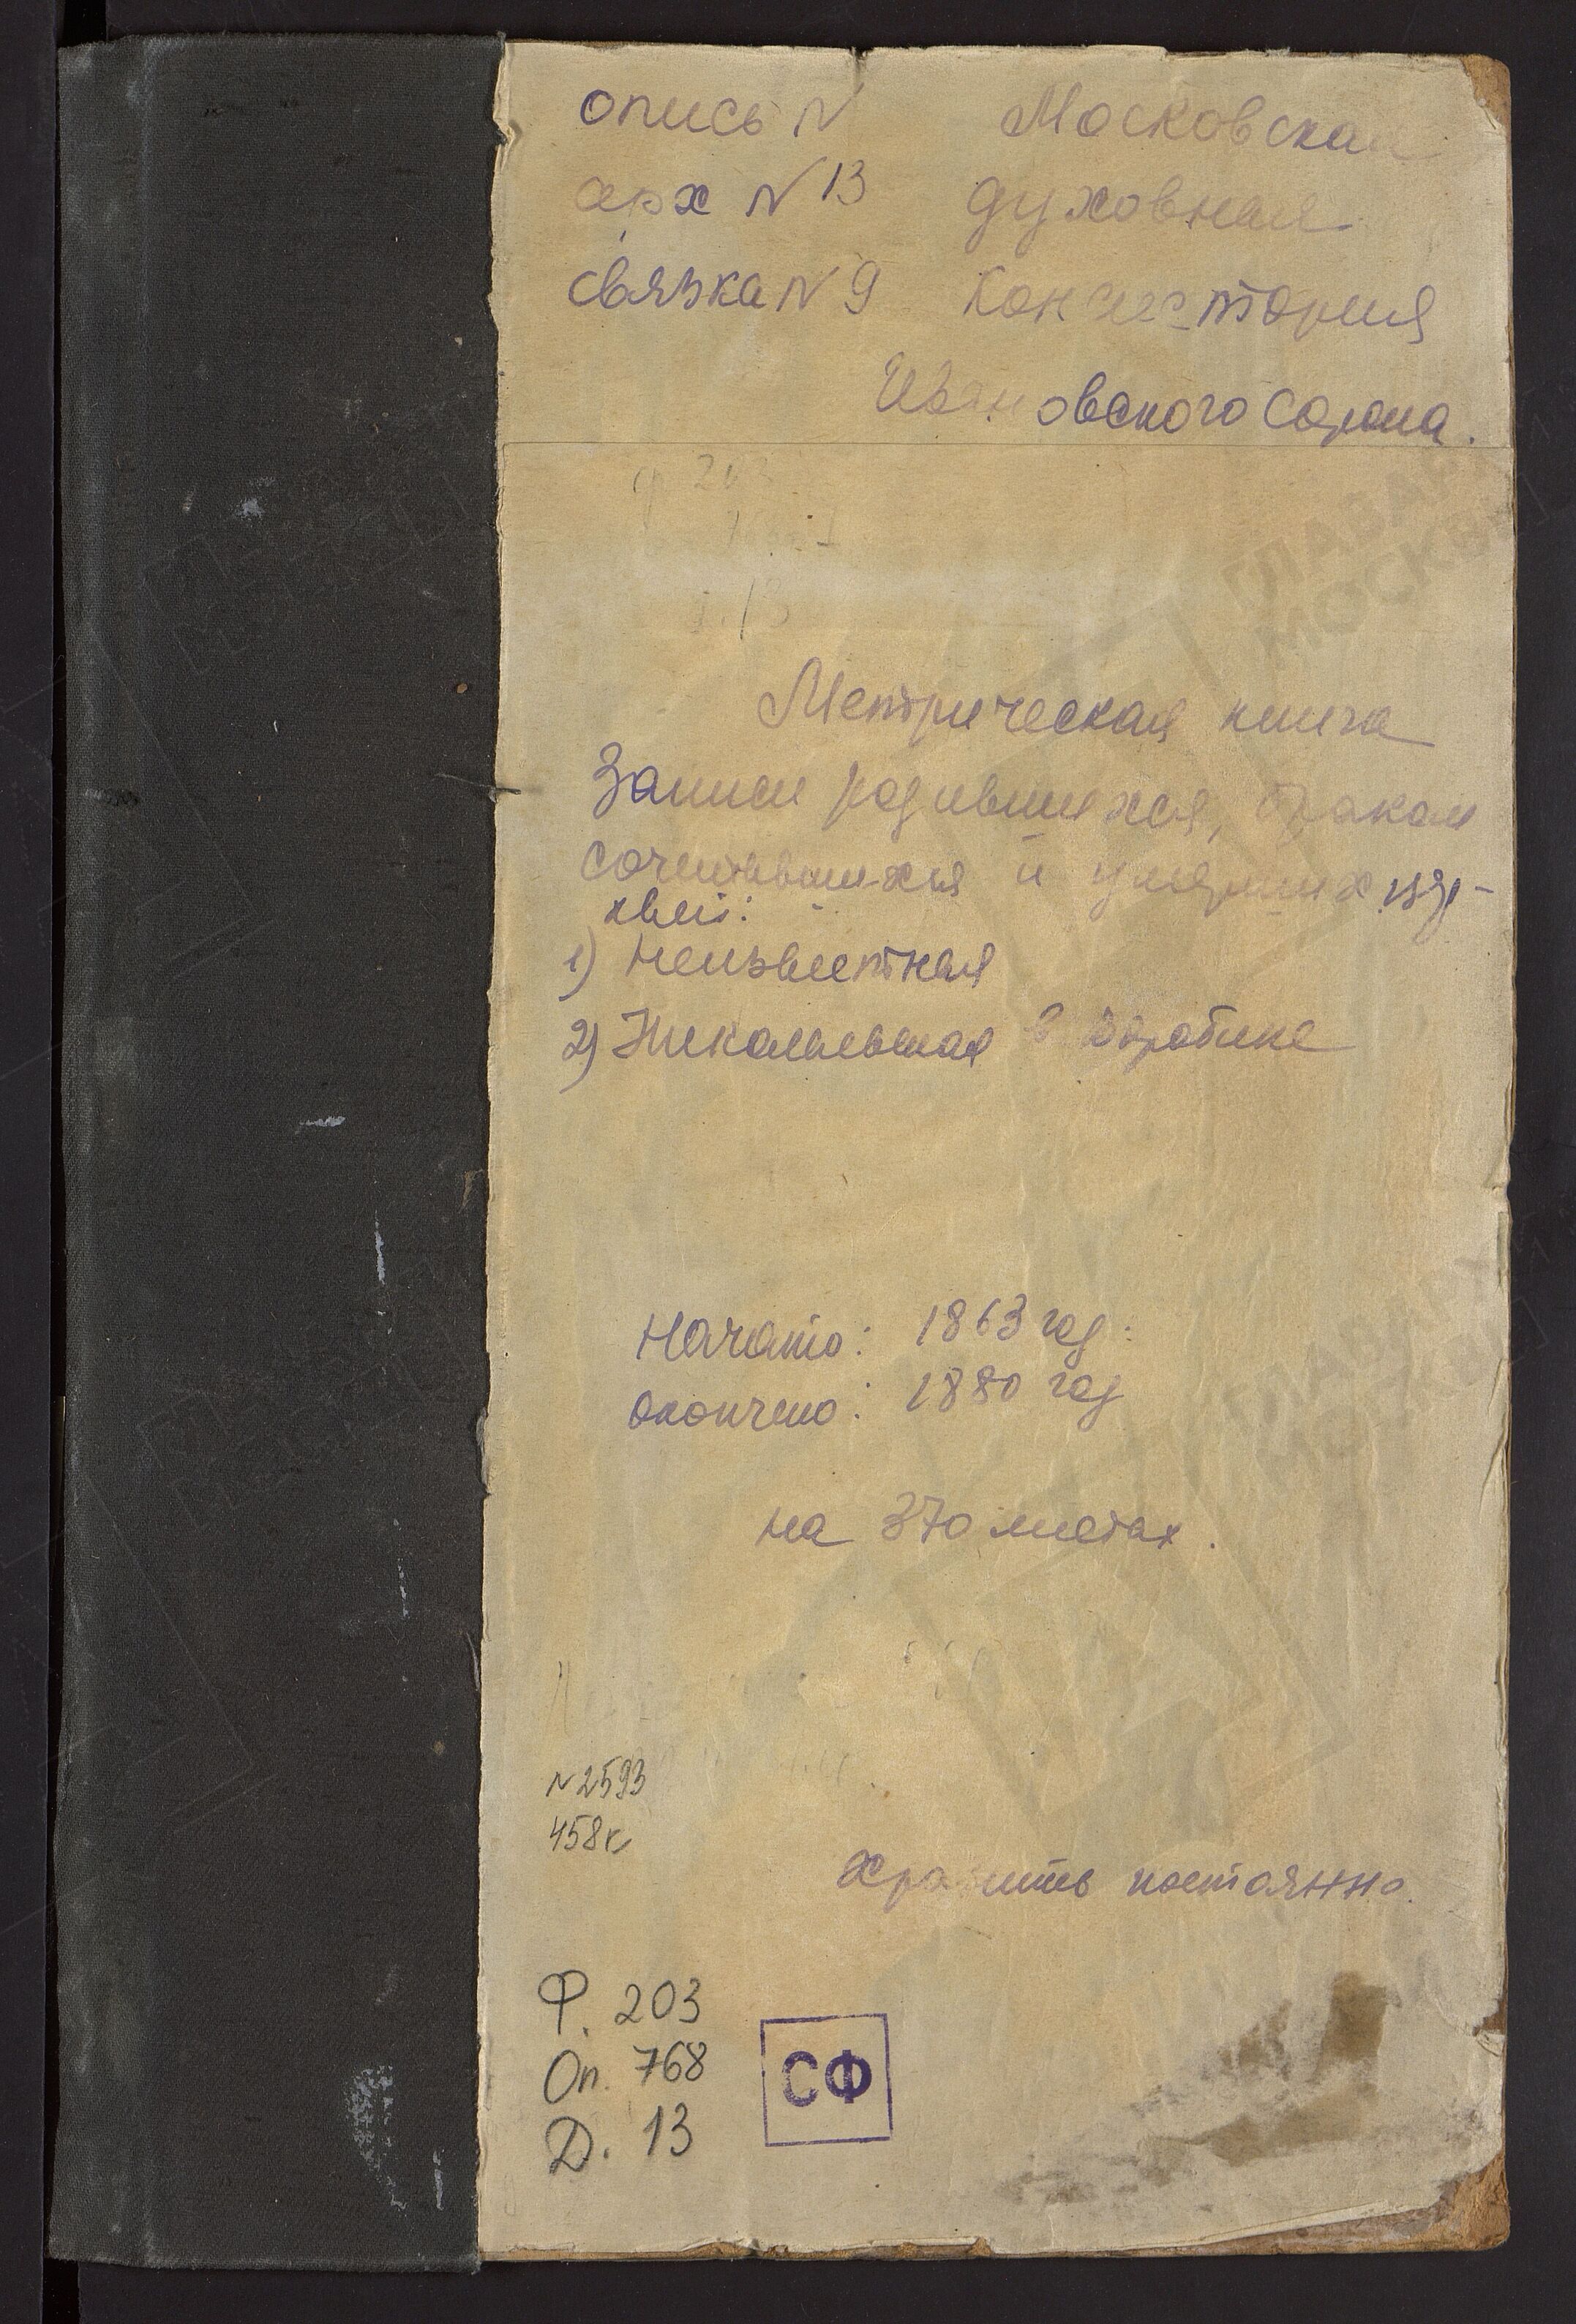 опись № Московская
арх № 13 духовная
связка № 9 Консистория
Ивановского Сорока.
ф 203
13
Метрическая книга
Записи родившихся, браком
сочетавшихся и умерших цер-
квей:
1) Неизвестная
2) Николаевская в
Начато: 1863 год.
Окончено: 1880 год
на 370 листах.
№ 2593
458к
Хранить постоянно.
Ф. 203
Оп. 768
Д. 13
СФ
ГЛАВАРХИВ
МОСКВЫ